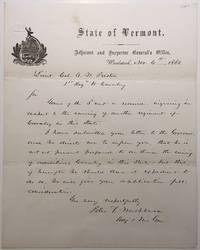 State of Vermont.
Adjutant and Inspector General's Office,
Woodstock, Nov. 6th, 1862
Lieut. Col. A. W. Preston
1st Reg't Vt Cavalry
Sir
Yours of the 3d inst is received inquiring in
regard to the raising of another regiment of
Cavalry in this State.
I have submitted your letter to the Governor
and he directs me to inform you, that he is
not at present prepared to authorize the raising
of additional Cavalry in this State, but that
if hereafter he should deem it expedient to
do so, he will give your application full
consideration.
Very respectfully
Peter T. Washburn
Adj't & Ins. Gen.